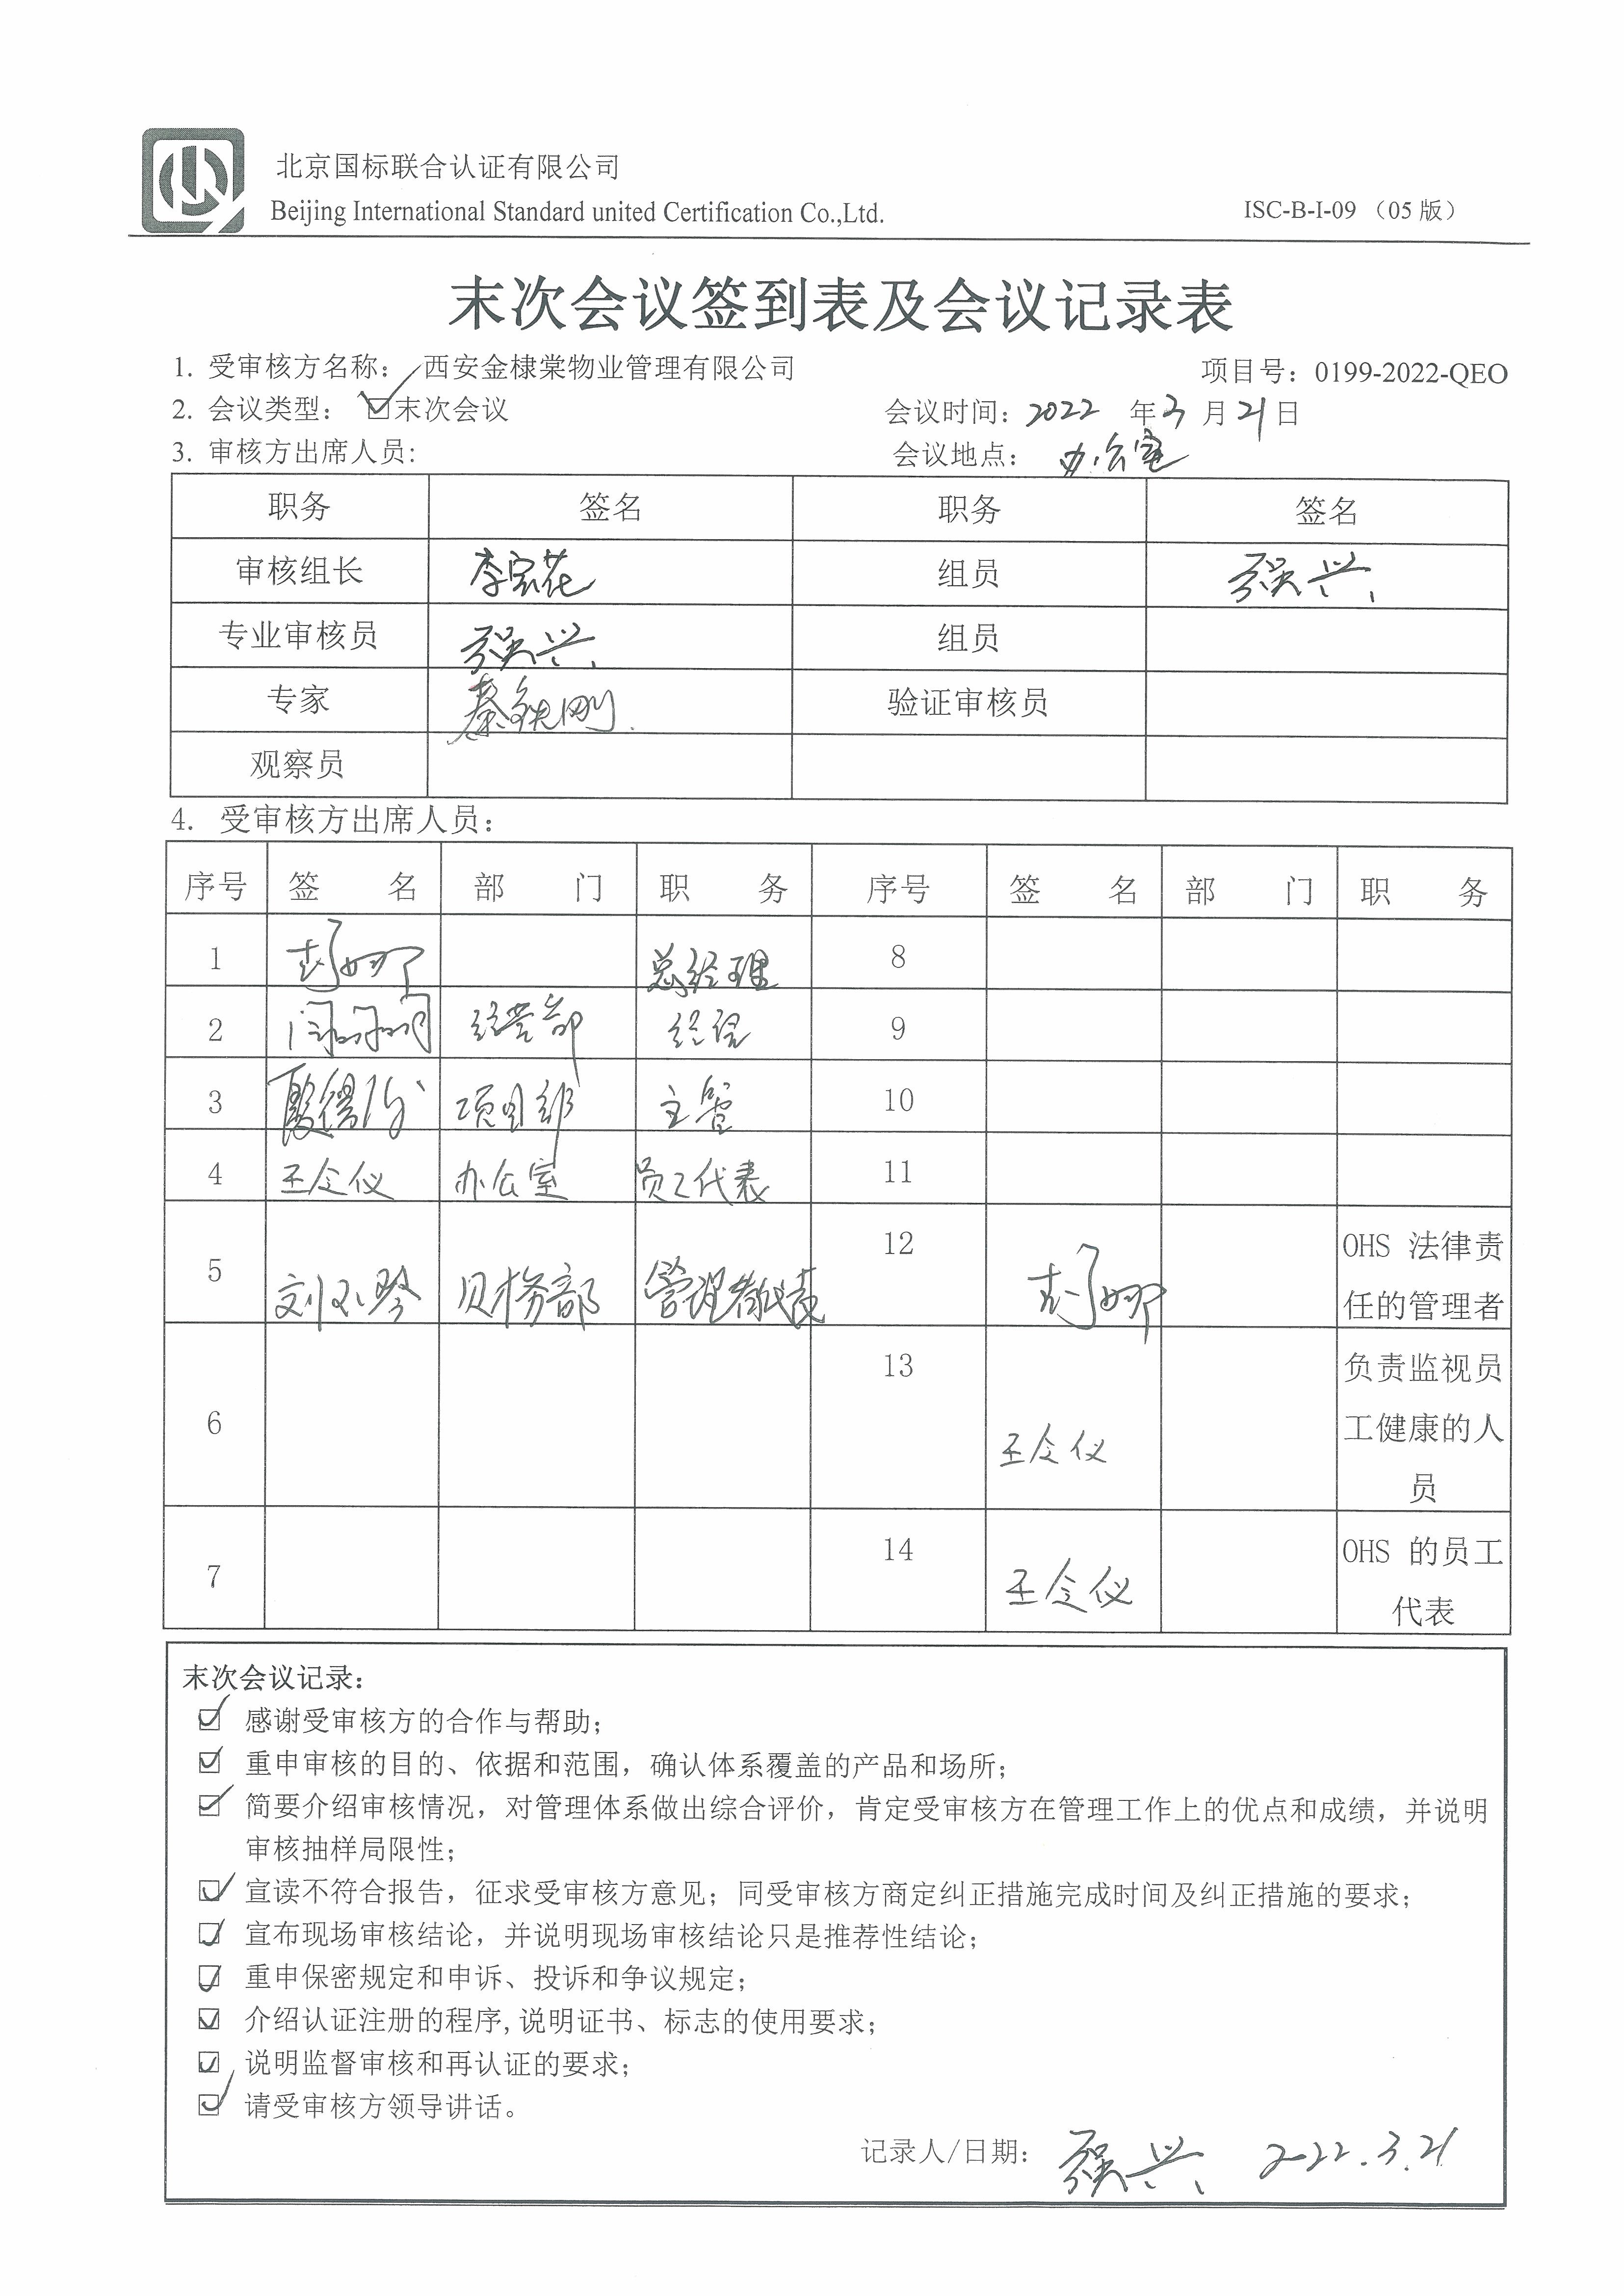 北京国标联合认证有限公司
Beijing International Standard united Certification Co.,Ltd.
ISC-B-I-09 （05 版）
末次会议签到表及会议记录表
1. 受审核方名称： 西安金棣棠物业管理有限公司 项目号：0199-2022-QEO
2. 会议类型： ☑末次会议 会议时间：2022 年 3 月 21 日
3. 审核方出席人员： 会议地点： 办公室
职务 签名 职务 签名
审核组长 李宗花 组员 强兴
专业审核员 强兴 组员
专家 秦铁刚 验证审核员
观察员
4. 受审核方出席人员：
序号 签 名 部 门 职 务 序号 签 名 部 门 职 务
1 总经理 8
2 经营部 经理 9
3 项目部 主管 10
4 王令仪 办公室 员工代表 11
5 财务部 管理者代表 12 OHS 法律责
任的管理者
6 13 王令仪 负责监视员
工健康的人
员
7 14 王令仪 OHS 的员工
代表
末次会议记录：
☑ 感谢受审核方的合作与帮助；
☑ 重申审核的目的、依据和范围，确认体系覆盖的产品和场所；
☑ 简要介绍审核情况，对管理体系做出综合评价，肯定受审核方在管理工作上的优点和成绩，并说明
审核抽样局限性；
☑ 宣读不符合报告，征求受审核方意见；同受审核方商定纠正措施完成时间及纠正措施的要求；
☑ 宣布现场审核结论，并说明现场审核结论只是推荐性结论；
☑ 重申保密规定和申诉、投诉和争议规定；
☑ 介绍认证注册的程序,说明证书、标志的使用要求；
☑ 说明监督审核和再认证的要求；
☑ 请受审核方领导讲话。
记录人/日期： 强兴 2022.3.21